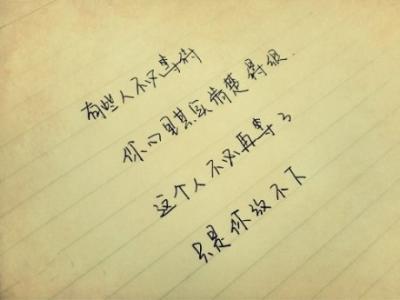 有些人不必等待
你心里其实清楚得很.
这个人不必再等了
只是你放不下